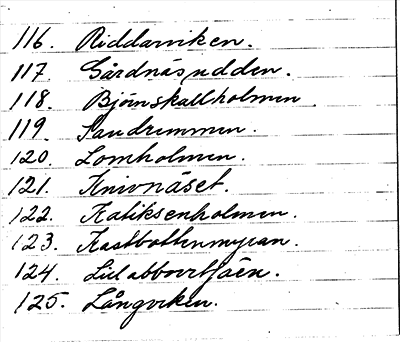 116. Riddarviken.
117. Gårdnäsudden.
118. Björnskallholmen
119. Sandremmen.
120. Lomholmen.
121. Knivnäset.
122. Kaliksenholmen.
123. Kastbottenmyran.
124. Lillabborrtjäen.
125. Långviken.